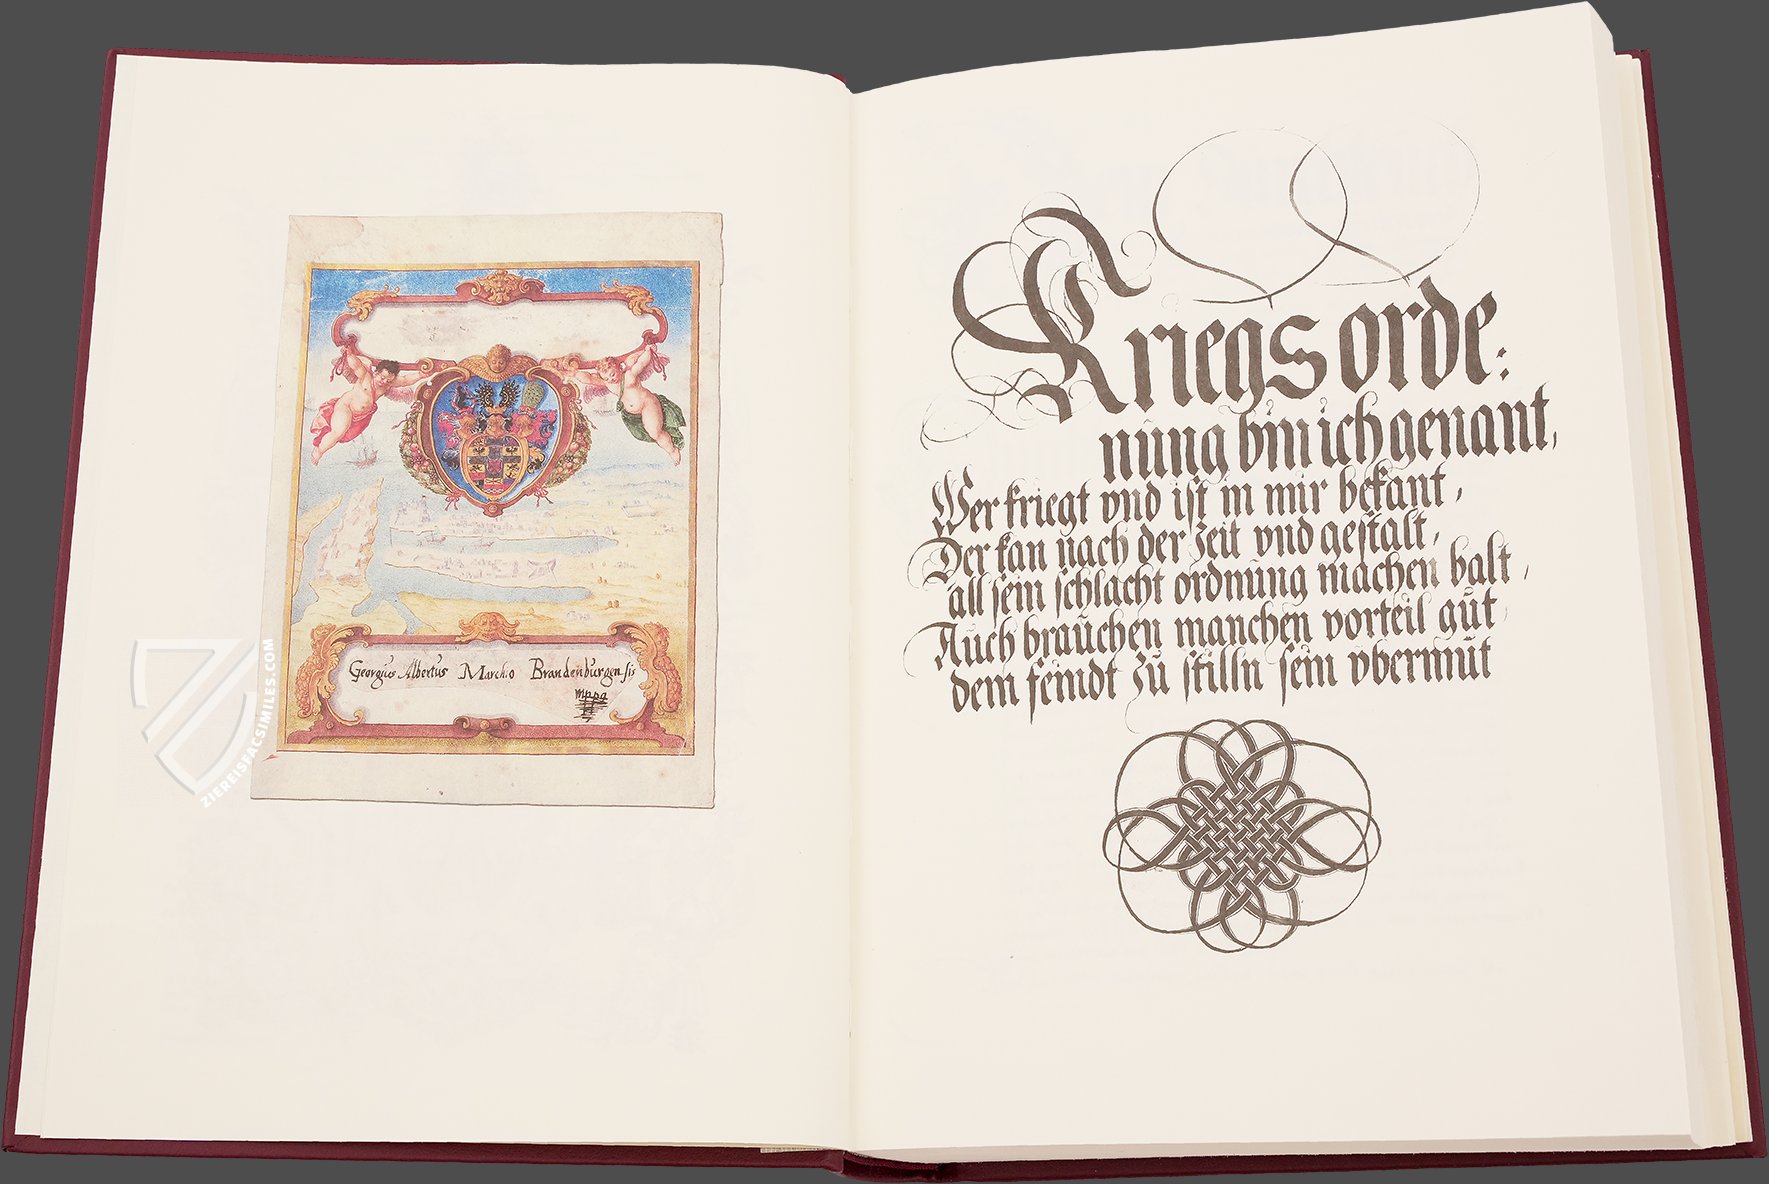 Georgius Albertus Marchio Brandenburgensis
mppa
Kriegsorde:
nŭng bin ich genant,
Wer kriegt vnd ist in mir bekant,
Der kan nach der zeit vnd gestalt,
all sein schlacht ordnŭng machen balt,
Aŭch braŭchen manchen vorteil gŭt,
dem feindt zŭ stilln sein vbermŭt
ZIEREISFACSIMILES.COM